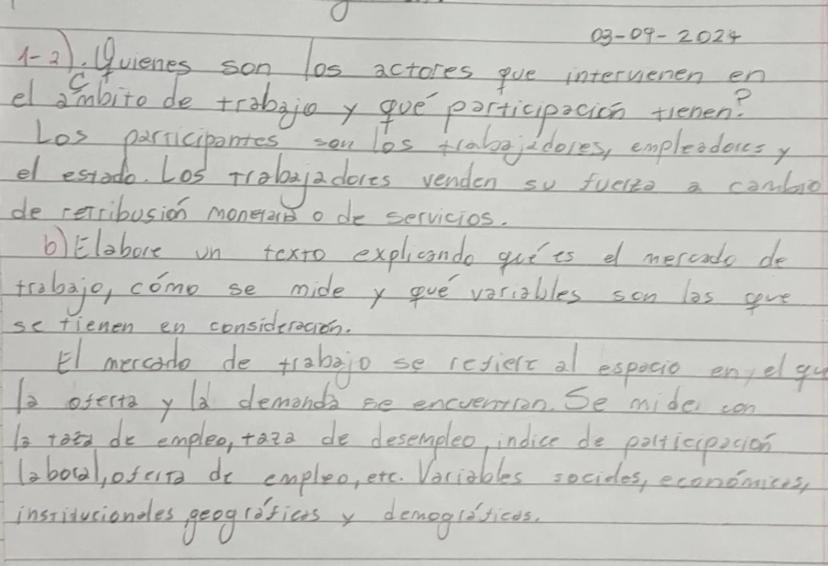 03-09-2024
1-a). ¿Quienes son los actores que intervienen en
el ámbito de trabajo y qué participación tienen?
Los participantes son los trabajadores, empleadores y
el estado. Los trabajadores venden su fuerza a cambio
de retribusión monetaria o de servicios.
b) Elabore un texto explicando qué es el mercado de
trabajo, cómo se mide y qué variables son las que
se tienen en consideración.
El mercado de trabajo se refiere al espacio en el que
la oferta y la demanda se encuentran. Se mide con
la taza de empleo, taza de desempleo, indice de participación
laboral, oferta de empleo, etc. Variables sociales, económicas,
institucionales, geográficas y demográficas.